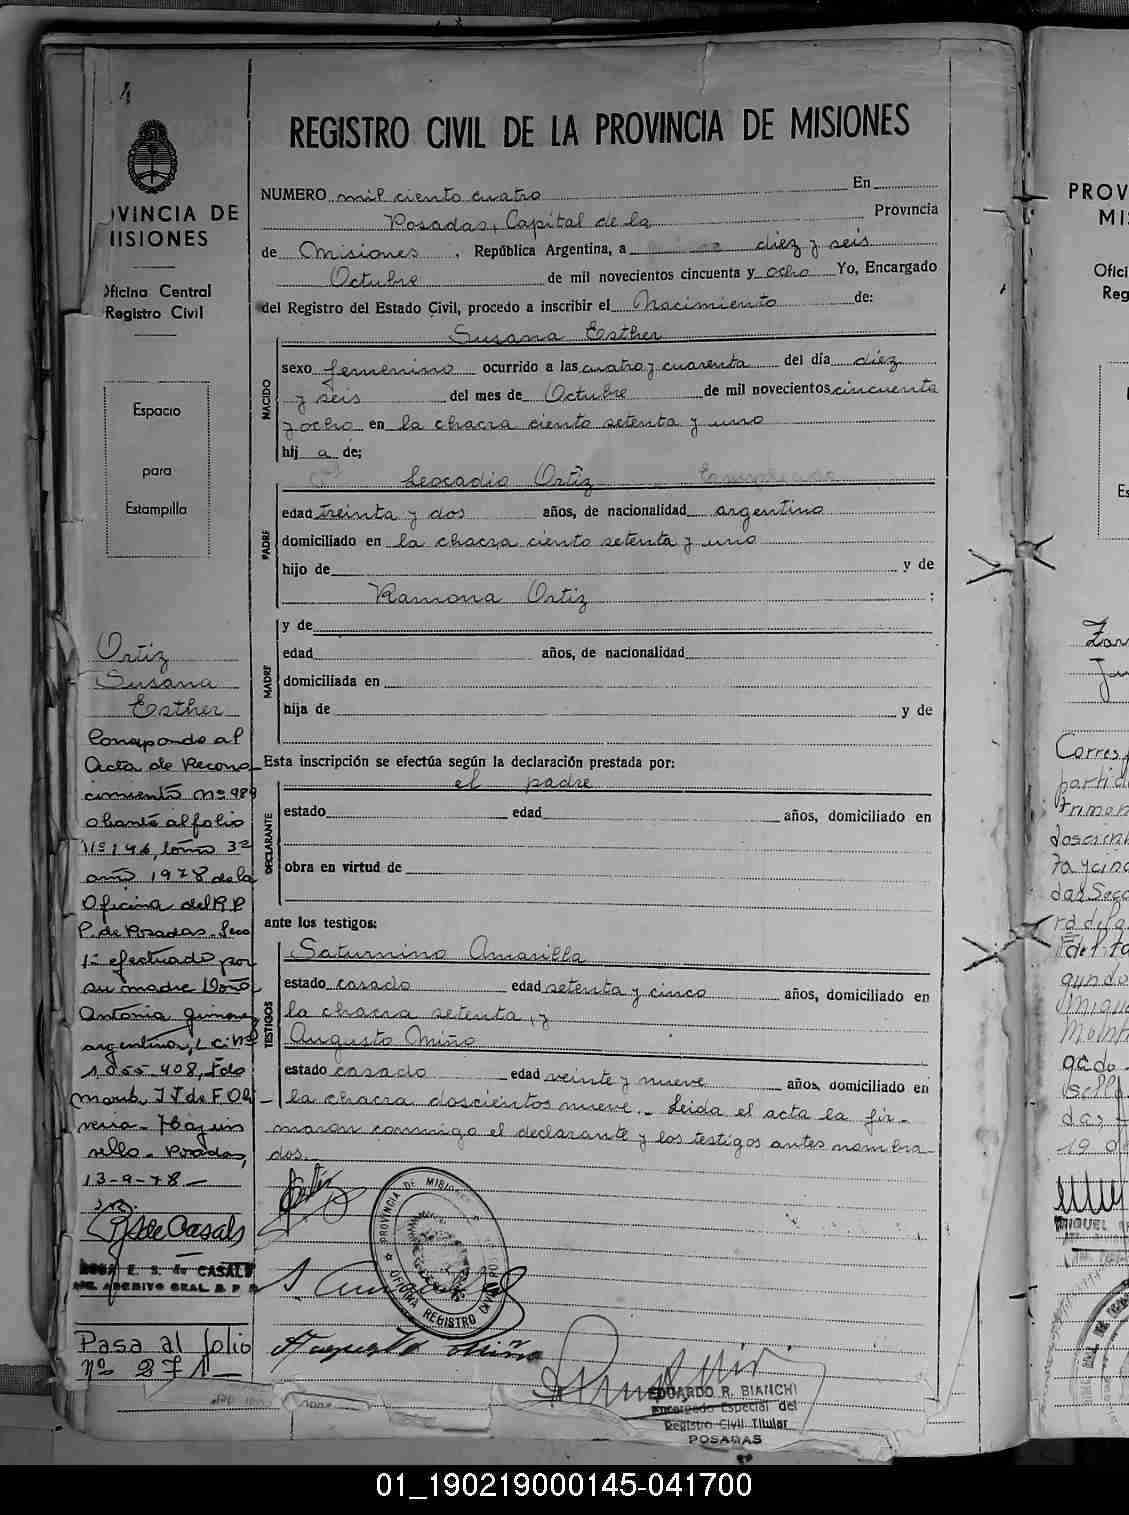 4
REGISTRO CIVIL DE LA PROVINCIA DE MISIONES
NUMERO mil ciento cuatro En
Posadas, Capital de la Provincia
de Misiones, República Argentina, a diez y seis
Octubre de mil novecientos cincuenta y ocho Yo, Encargado
del Registro del Estado Civil, procedo a inscribir el Nacimiento de:
NACIDO
Susana Esther
sexo femenino ocurrido a las cuatro y cuarenta del día diez
y seis del mes de Octubre de mil novecientos cincuenta
y ocho en la chacra ciento setenta y uno
hij a de;
PADRE
Leocadio Ortiz
edad treinta y dos años, de nacionalidad argentino
domiciliado en la chacra ciento setenta y uno
hijo de y de
Ramona Ortiz ;
MADRE
y de
edad años, de nacionalidad
domiciliada en
hija de y de
Esta inscripción se efectúa según la declaración prestada por:
DECLARANTE
el padre
estado edad años, domiciliado en
obra en virtud de
ante los testigos:
TESTIGOS
Saturnino Amarilla
estado casado edad setenta y cinco años, domiciliado en
la chacra setenta, y
Augusto Miño
estado casado edad veinte y nueve años, domiciliado en
la chacra doscientos nueve.- Leida el acta la fir-
maron conmigo el declarante y los testigos antes nombra-
dos.
PROVINCIA DE MISIONES
OFICINA REGISTRO CIVIL
Augusto Miño
EDUARDO R. BIANCHI
Encargado Especial del
Registro Civil Titular
POSADAS
VINCIA DE
MISIONES
Oficina Central
Registro Civil
Espacio
para
Estampilla
Ortiz
Susana
Esther
Corresponde al
Acta de Recono
cimiento nº 989
obante al folio
Nº 196, tomo 3º
año 1978 de la
Oficina del R.P.
P. de Posadas. Secc
1ª efectuado por
su madre Doña
Antonia Gimenez
argentina, L.C. Nº
1.055.408, Fdo
Posadas,
13-9-78
R S de Casals
ROSA E. S. de CASALS
ARCHIVO GRAL. R. P.
Pasa al folio
nº 271
PROV
MI
Ofici
Reg
Es
Corres
partid
doscien
MIGUEL
01_190219000145-041700